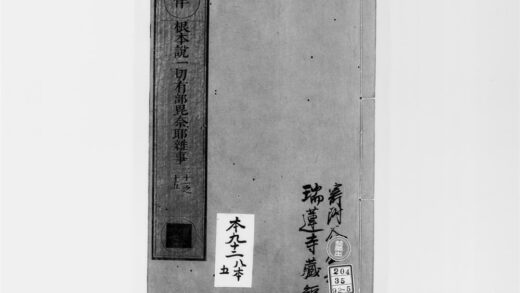 根本說一切有部毘奈耶雜事
十一之
十五
本九十二ノ八本
五
瑞蓮寺藏
204
35
92-5